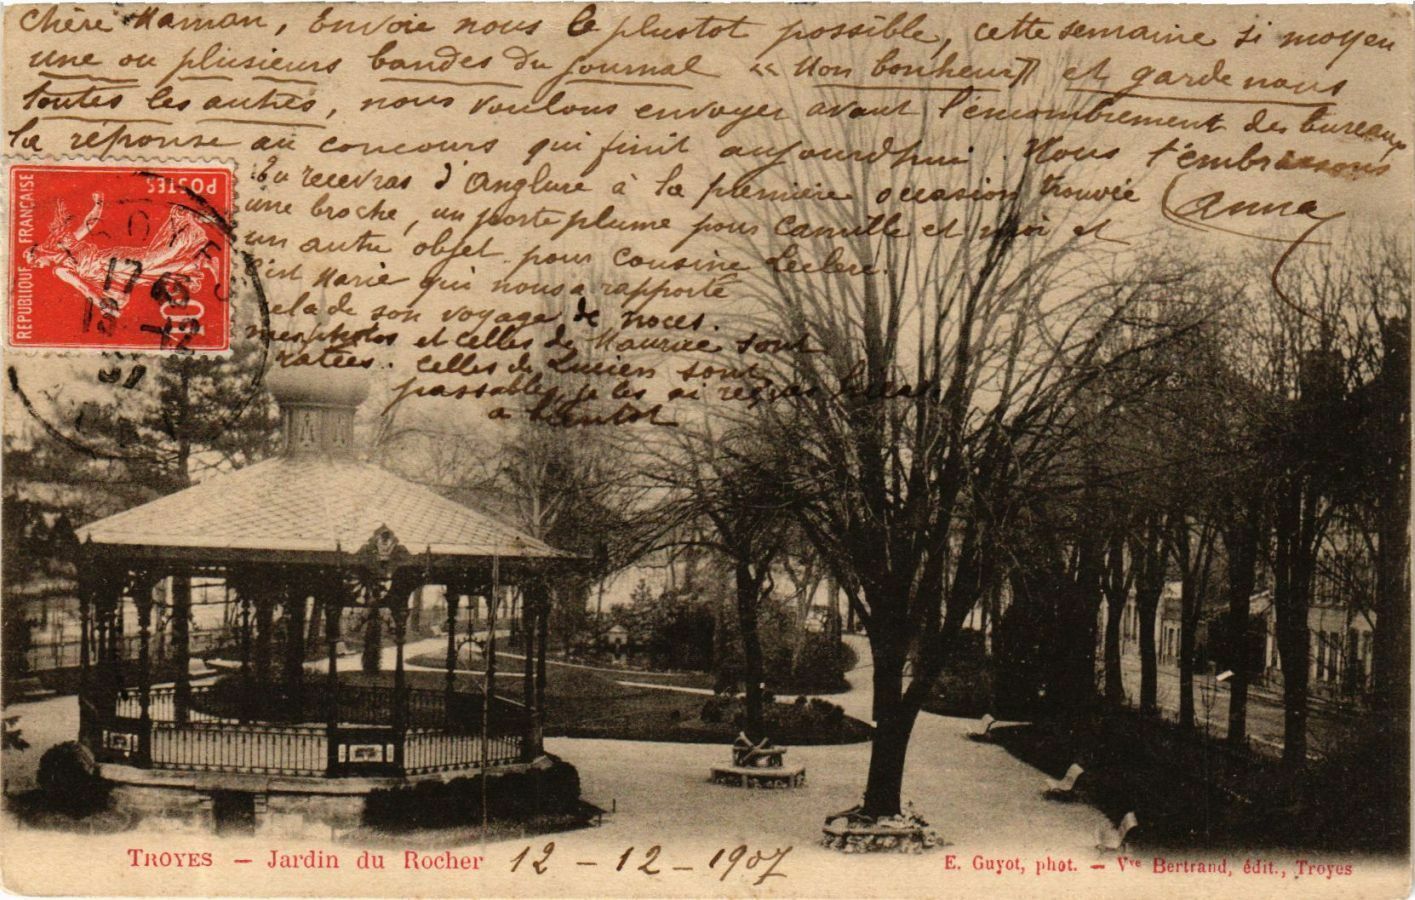 Chère Maman, Envoie nous le plustot possible, cette semaine si moyen
une ou plusieurs bandes du journal « Mon bonheur » et garde nous
toutes les autres, nous voulons envoyer avant l'encombrement des bureaux
la réponse au concours qui finit aujourd'hui. Nous t'embrassons
Tu recevras d'Anglure à la première occasion trouvée Anna
une broche, un porte plume pour Camille et moi et
un autre objet pour cousine Leclerc.
C'est Marie qui nous a rapporté
cela de son voyage de noces.
mes photos et celles de Maurice sont
ratées. celles de Lucien sont
passables, je les ai
a bientot
REPUBLIQUE FRANÇAISE
POSTES
10
TROYES
17
12
07
TROYES — Jardin du Rocher 12 - 12 - 1907
E. Guyot, phot. — Vve Bertrand, édit., Troyes